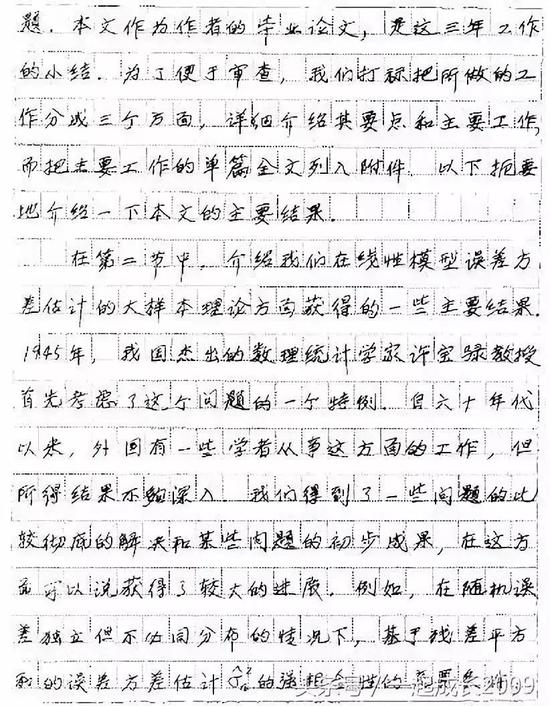 题．本文作为作者的毕业论文，是这三年工作
的小结．为了便于审查，我们打标把所做的工
作分成三个方面，详细介绍其要点和主要工作，
而把主要工作的单篇全文列入附件．以下扼要
地介绍一下本文的主要结果．
在第二节中，介绍我们在线性模型误差方
差估计的大样本理论方面获得的一些主要结果．
1945年，我国杰出的数理统计学家许宝騄教授
首先考虑了这个问题的一个特例．自六十年代
以来，外国有一些学者从事这方面的工作，但
所得结果不够深入．我们得到了一些问题的比
较彻底的解决和某些问题的初步成果，在这方
面可以说获得了较大的进展．例如，在随机误
差独立但不必同分布的情况下，基于残差平方
和的误差方差估计 的强相合性的 要条件
头条号/一起成长2009